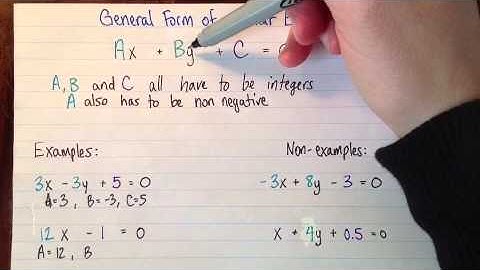 General Form of
Ax + By + C =
A, B and C all have to be integers
A also has to be non negative
Examples:
Non-examples:
3x - 3y + 5 = 0
-3x + 8y - 3 = 0
A=3, B=-3, C=5
12x - 1 = 0
x + 4y + 0.5 = 0
A = 12, B